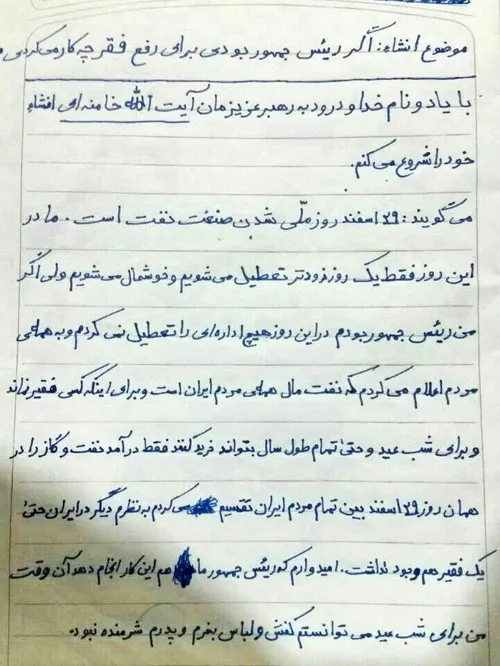 موضوع انشاء: اگر رئیس جمهور بودی برای رفع فقر چه کار می‌کردی
با یاد و نام خدا و درود به رهبر عزیزمان آیت الله خامنه‌ای انشاء
خود را شروع می‌کنم.
می‌گویند: ۲۹ اسفند روز ملّی شدن صنعت نفت است. ما در
این روز فقط یک روز زودتر تعطیل می‌شویم و خوشحال می‌شویم ولی اگر
من رئیس جمهور بودم در این روز هیچ اداره‌ای را تعطیل نمی‌کردم و به همه‌ی
مردم اعلام می‌کردم که نفت مال همه‌ی مردم ایران است و برای اینکه کسی فقیر نماند
و برای شب عید و حتیٰ تمام طول سال بتواند خرید کند فقط درآمد نفت و گاز را در
همان روز ۲۹ اسفند بین تمام مردم ایران تقسیم می‌کردم به نظرم دیگر در ایران حتیٰ
یک فقیر هم وجود نداشت. امیدوارم که رئیس جمهور ما هم این کار انجام دهد آن وقت
من برای شب عید می‌توانستم کفش و لباس بخرم و پدرم شرمنده نبود.